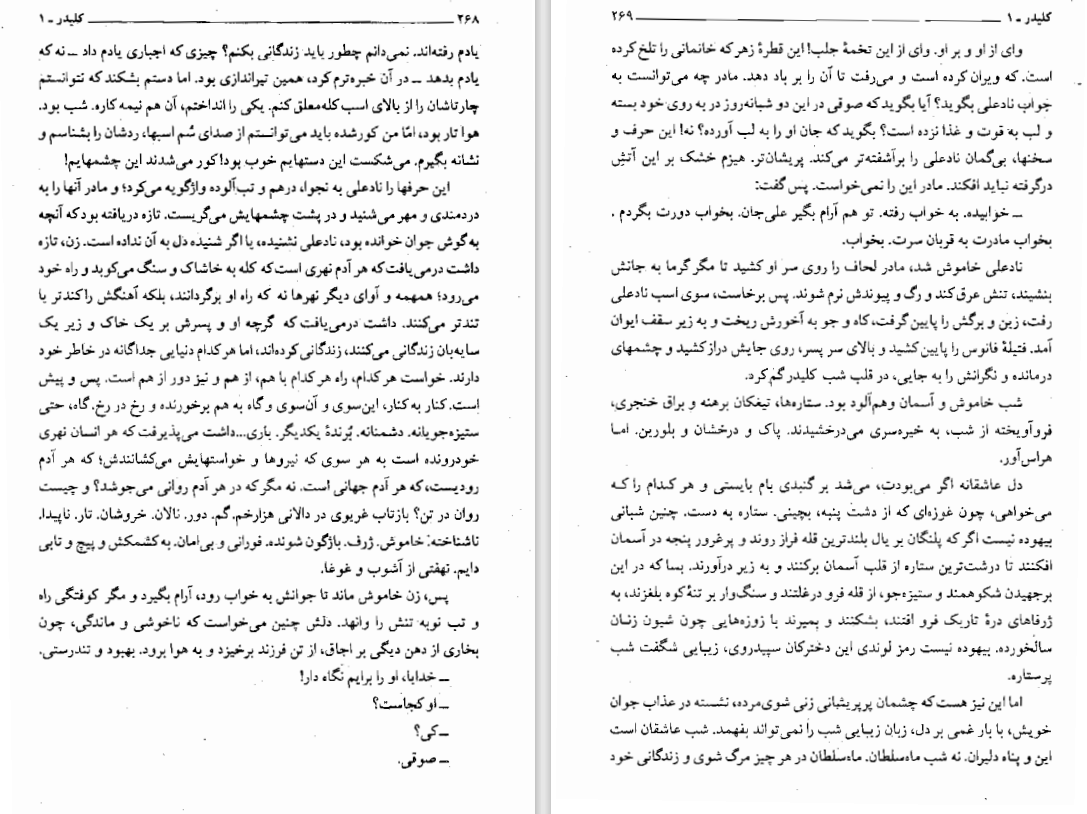 ۲۶۸ کلیدر ـ ۱
یادم رفته‌اند. نمی‌دانم چطور باید زندگانی بکنم؟ چیزی که اجباری یادم داد ــ نه که
یادم بدهد ــ در آن خبره‌ترم کرد، همین تیراندازی بود. اما دستم بشکند که نتوانستم
چارتاشان را از بالای اسب کله‌معلق کنم. یکی را انداختم، آن هم نیمه کاره. شب بود.
هوا تار بود، امّا من کورشده باید می‌توانستم از صدای سُم اسبها، ردشان را بشناسم و
نشانه بگیرم. می‌شکست این دستهایم خوب بود! کور می‌شدند این چشمهایم!
این حرفها را نادعلی به نجوا، درهم و تب‌آلوده واژگویه می‌کرد؛ و مادر آنها را به
دردمندی و مهر می‌شنید و در پشت چشمهایش می‌گریست. تازه دریافته بود که آنچه
به گوش جوان خوانده بود، نادعلی نشنیده، یا اگر شنیده دل به آن نداده است. زن، تازه
داشت درمی‌یافت که هر آدم نهری است که کله به خاشاک و سنگ می‌کوبد و راه خود
می‌رود؛ همهمه و آوای دیگر نهرها نه که راه او برگردانند، بلکه آهنگش را کندتر یا
تندتر می‌کنند. داشت درمی‌یافت که گرچه او و پسرش بر یک خاک و زیر یک
سایه‌بان زندگانی می‌کنند، زندگانی کرده‌اند، اما هر کدام دنیایی جداگانه در خاطر خود
دارند. خواست هر کدام، راه هر کدام با هم، از هم و نیز دور از هم است. پس و پیش
است. کنار به کنار، این‌سوی و آن‌سوی و گاه به هم برخورنده و رخ در رخ. گاه، حتی
ستیزه‌جویانه. دشمنانه. بُرندهٔ یکدیگر. باری...داشت می‌پذیرفت که هر انسان نهری
خودرونده است به هر سوی که نیروها و خواستهایش می‌کشانندش؛ که هر آدم
رودیست، که هر آدم جهانی است. نه مگر که در هر آدم روانی می‌جوشد؟ و چیست
روان در تن؟ بازتاب غریوی در دالانی هزارخم. گم. دور. نالان. خروشان. تار. ناپیدا.
ناشناخته: خاموش. ژرف. باژگون شونده. فورانی و بی‌امان. به کشمکش و پیچ و تابی
دایم. نهفتی از آشوب و غوغا.
پس، زن خاموش ماند تا جوانش به خواب رود، آرام بگیرد و مگر کوفتگی راه
و تب نوبه تنش را وانهد. دلش چنین می‌خواست که ناخوشی و ماندگی، چون
بخاری از دهن دیگی بر اجاق، از تن فرزند برخیزد و به هوا برود. بهبود و تندرستی.
ــ خدایا، او را برایم نگاه دار!
ــ او کجاست؟
ــ کی؟
ــ صوقی.
کلیدر ـ ۱ ۲۶۹
وای از او و بر او. وای از این تخمهٔ جلب! این قطرهٔ زهر که خانمانی را تلخ کرده
است. که ویران کرده است و می‌رفت تا آن را بر باد دهد. مادر چه می‌توانست به
جواب نادعلی بگوید؟ آیا بگوید که صوقی در این دو شبانه‌روز در به روی خود بسته
و لب به قوت و غذا نزده است؟ بگوید که جان او را به لب آورده؟ نه! این حرف و
سخنها، بی‌گمان نادعلی را برآشفته‌تر می‌کند. پریشان‌تر. هیزم خشک بر این آتشِ
درگرفته نباید افکند. مادر این را نمی‌خواست. پس گفت:
ــ خوابیده. به خواب رفته. تو هم آرام بگیر علی‌جان. بخواب دورت بگردم .
بخواب مادرت به قربان سرت. بخواب.
نادعلی خاموش شد، مادر لحاف را روی سر او کشید تا مگر گرما به جانش
بنشیند، تنش عرق کند و رگ و پیوندش نرم شوند. پس برخاست، سوی اسب نادعلی
رفت، زین و برگش را پایین گرفت، کاه و جو به آخورش ریخت و به زیر سقف ایوان
آمد. فتیلهٔ فانوس را پایین کشید و بالای سر پسر، روی جایش دراز کشید و چشمهای
درمانده و نگرانش را به جایی، در قلب شب کلیدر گم کرد.
شب خاموش و آسمان وهم‌آلود بود. ستاره‌ها، تیغکان برهنه و براق خنجری،
فروآویخته از شب، به خیره‌سری می‌درخشیدند. پاک و درخشان و بلورین. اما
هراس‌آور.
دل عاشقانه اگر می‌بودت، می‌شد بر گنبدی بام بایستی و هر کدام را که
می‌خواهی، چون غوزه‌ای که از دشت پنبه، بچینی. ستاره به دست. چنین شبانی
بیهوده نیست اگر که پلنگان بر یال بلندترین قله فراز روند و پرغرور پنجه در آسمان
افکنند تا درشت‌ترین ستاره از قلب آسمان برکنند و به زیر درآورند. بسا که در این
برجهیدن شکوهمند و ستیزه‌جو، از قله فرو درغلتند و سنگ‌وار بر تنهٔ کوه بلغزند، به
ژرفاهای درهٔ تاریک فرو افتند، بشکنند و بمیرند با زوزه‌هایی چون شیون زنان
سالخورده. بیهوده نیست رمز لوندی این دخترکان سپیدروی، زیبایی شگفت شب
پرستاره.
اما این نیز هست که چشمان پرپریشانی زنی شوی‌مرده، نشسته در عذاب جوان
خویش، با بار غمی بر دل، زبان زیبایی شب را نمی‌تواند بفهمد. شب عاشقان است
این و پناه دلیران. نه شب ماه‌سلطان. ماه‌سلطان در هر چیز مرگ شوی و زندگانی خود